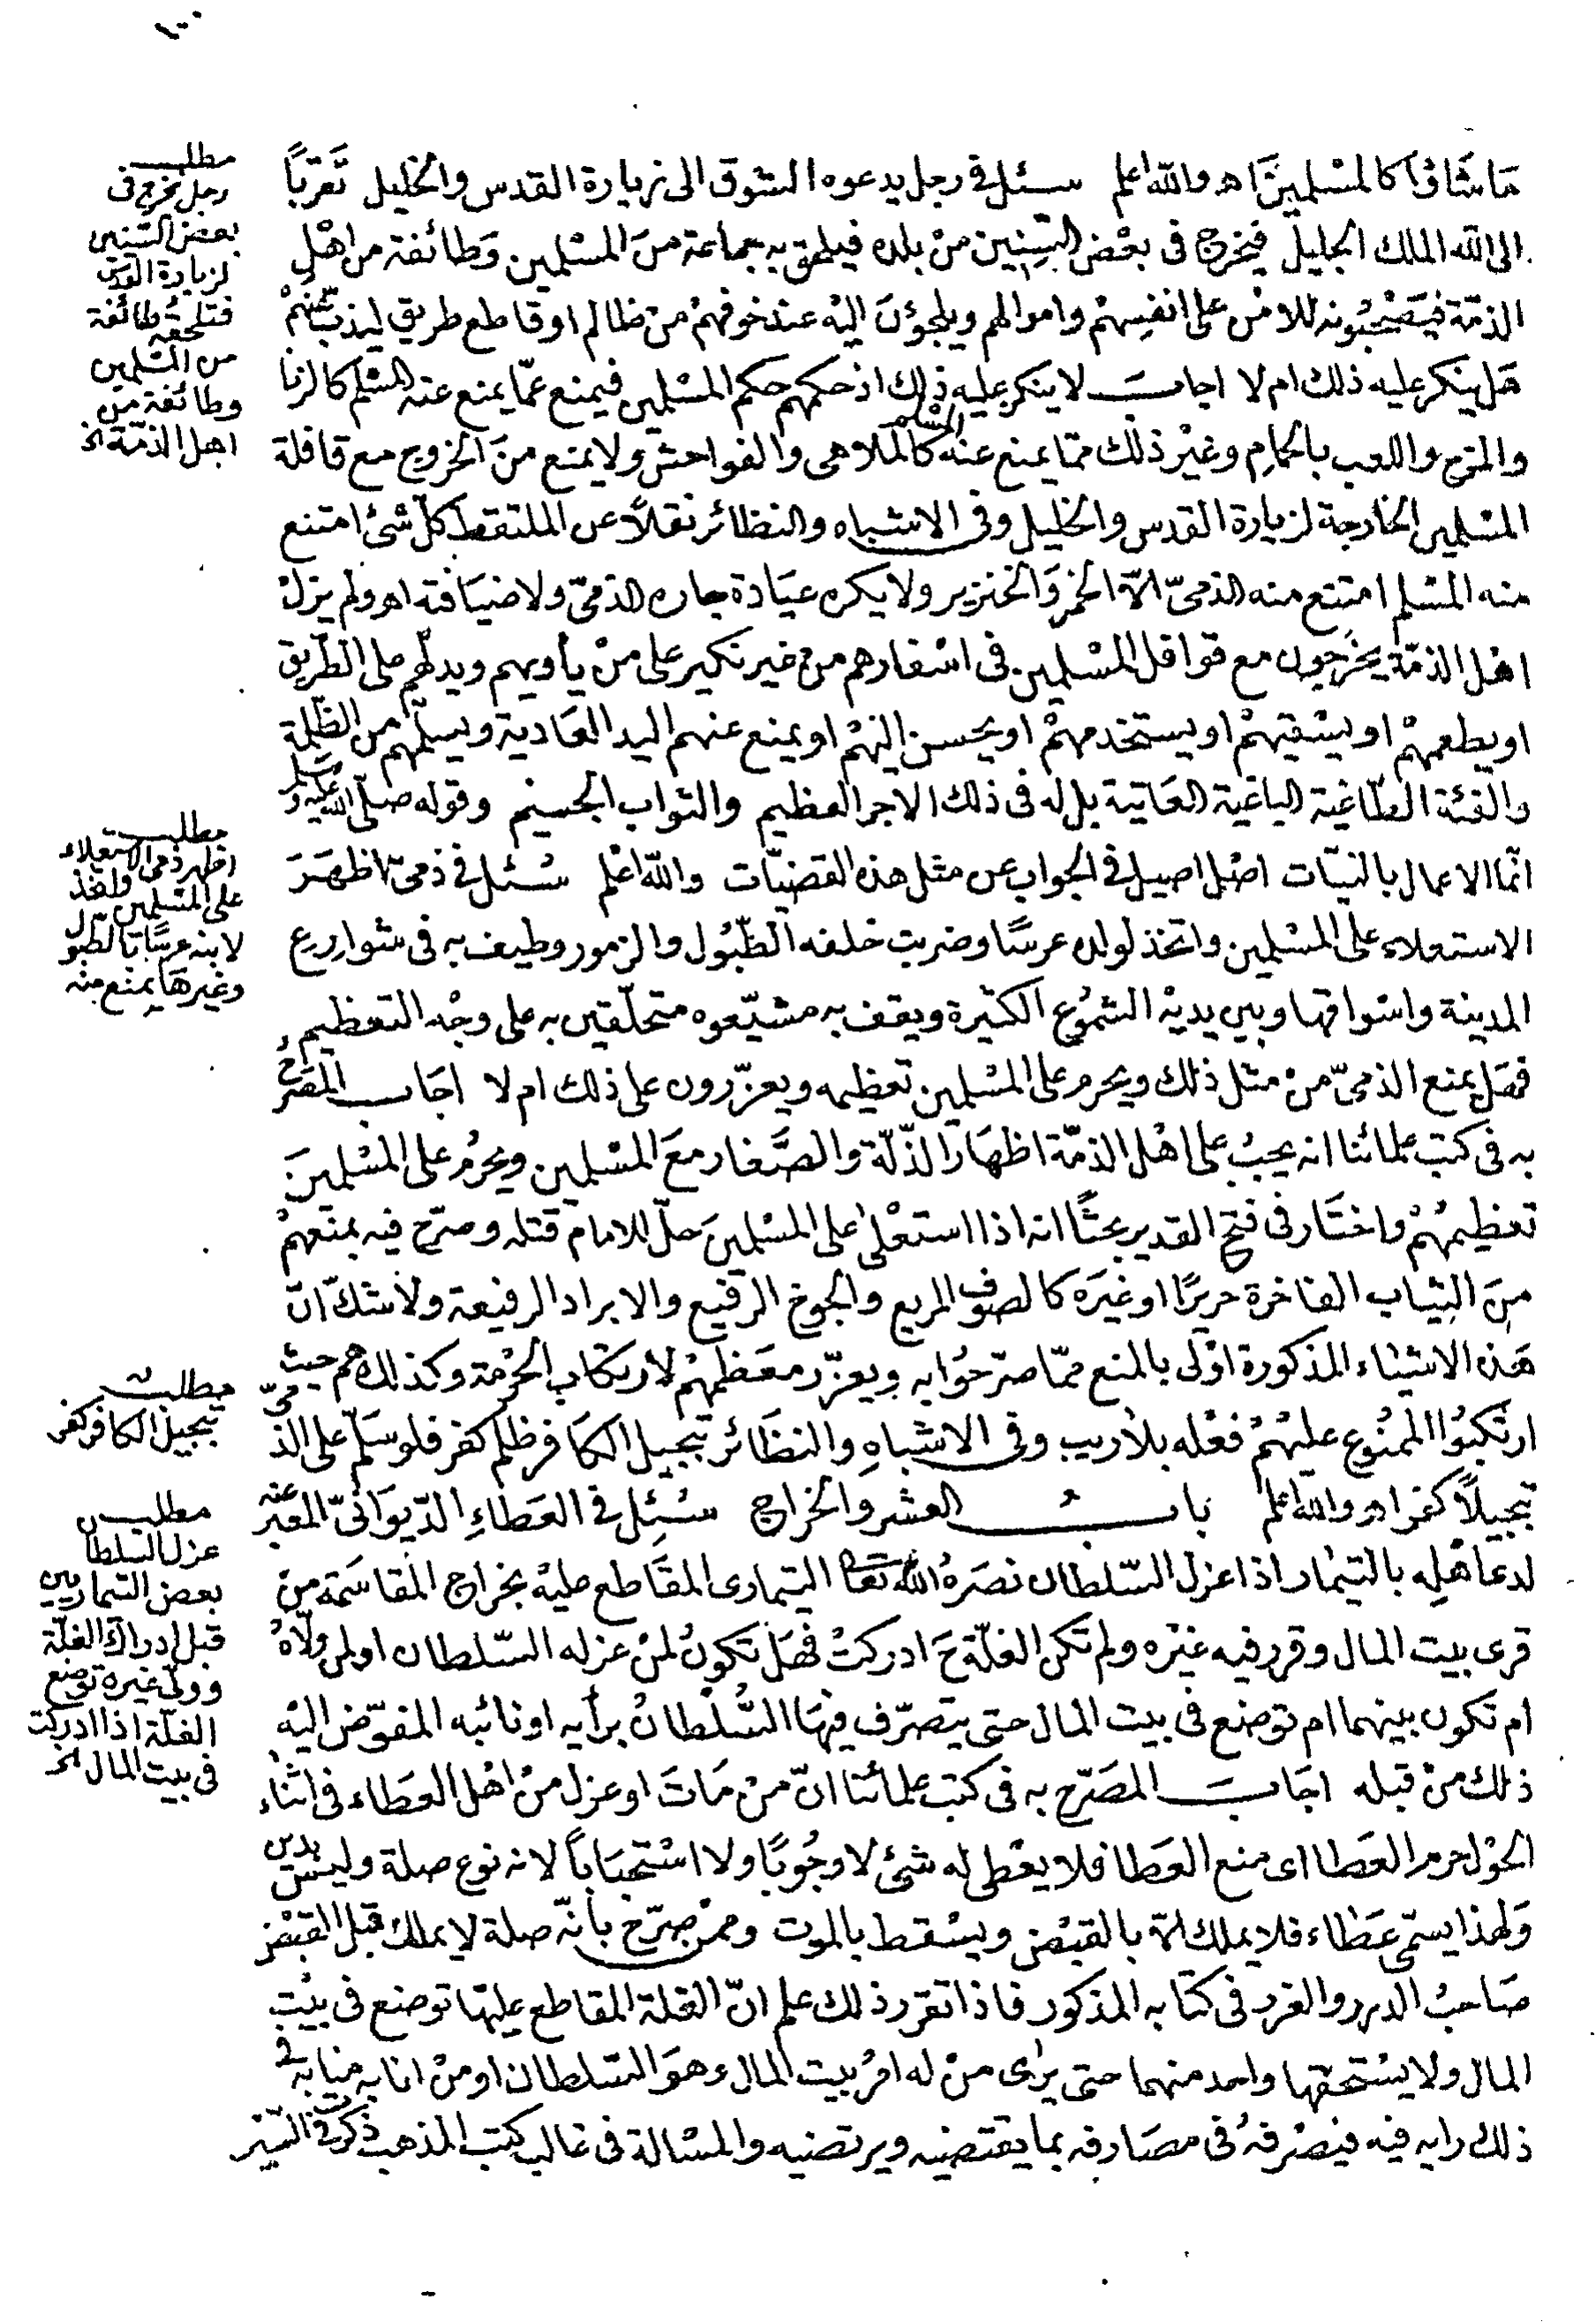 ١٠٠
ما شاؤا كالمسلمين اه والله اعلم سئل في رجل يدعوه الشوق الى زيارة القدس والخليل تقربا
الى الله الملك الجليل فيخرج في بعض السنين من بلده فيلحق به جماعة من المسلمين وطائفة من اهل
الذمة فيصحبونه للامن على انفسهم واموالهم ويلجؤن اليه عند خوفهم من ظالم او قاطع طريق ليذب عنهم
هل ينكر عليه ذلك ام لا اجاب لا ينكر عليه ذلك اذ حكمهم حكم المسلمين فيمنع عما يمنع عنه المسلم كالزنا
والمزح واللعب بالحمام وغير ذلك مما يمنع عنه المسلم كالملاهى والفواحش ولا يمنع من الخروج مع قافلة
المسلمين الخارجة لزيارة القدس والخليل وفى الاشباه والنظائر نقلا عن الملتقط كل شئ امتنع
منه المسلم امتنع منه الذمى الا الخمر والخنزير ولا يكره عيادة جاره الذمى ولا ضيافته اه ولم يزل
اهل الذمة يخرجون مع قوافل المسلمين فى اسفارهم من غير نكير على من يأويهم ويدلهم على الطريق
او يطعمهم او يسقيهم او يستخدمهم او يحسن اليهم او يمنع عنهم اليد العادية ويسلمهم من الظلمة
والفئة الطاغية الباغية العاتية بل له فى ذلك الاجر العظيم والثواب الجسيم وقوله صلى الله عليه وسلم
انما الاعمال بالنيات اصل اصيل فى الجواب عن مثل هذه القضيات والله اعلم سئل في ذمى اظهر
الاستعلاء على المسلمين واتخذ لولده عرسا وضربت خلفه الطبول والزمور وطيف به فى شوارع
المدينة واسواقها وبين يديه الشموع الكثيرة ويقف به مشيعوه متحلقين به على وجه التعظيم
فهل يمنع الذمى من مثل ذلك ويحرم على المسلمين تعظيمه ويعزرون على ذلك ام لا اجاب المصرح
به فى كتب علمائنا انه يجب على اهل الذمة اظهار الذلة والصغار مع المسلمين ويحرم على المسلمين
تعظيمهم واختار فى فتح القدير بحثا انه اذا استعلى على المسلمين حل للامام قتله وصرح فيه بمنعهم
من الثياب الفاخرة حريرا او غيره كالصوف المربع والجوخ الرفيع والابراد الرفيعة ولا شك ان
هذه الاشياء المذكورة اولى بالمنع مما صرحوا به ويعزر معظمهم لارتكاب الحرمة وكذلك هم حيث
ارتكبوا الممنوع عليهم فعله بلا ريب وفى الاشباه والنظائر تبجيل الكافر ظلم كفر فلو سلم على الذمى
تبجيلا كفر اه والله اعلم باب العشر والخراج سئل في العطاء الديوانى المعبر عنه
لدعاهله بالتيمار اذا عزل السلطان نصره الله تعا التيمارى المقاطع عليه بخراج المقاسمة من
قرى بيت المال وقرر فيه غيره ولم تكن الغلة ح ادركت فهل تكون لمن عزله السلطان او لمن ولاه
ام تكون بينهما ام توضع فى بيت المال حتى يتصرف فيها السلطان برأيه او نائبه المفوض اليه
ذلك من قبله اجاب المصرح به فى كتب علمائنا ان من مات او عزل من اهل العطاء فى اثناء
الحول حرم العطا اى منع العطا فلا يعطى له شئ لا وجوبا ولا استحبابا لانه نوع صلة وليس بدين
ولهذا يسمى عطاء فلا يملك الا بالقبض ويسقط بالموت وممن صرح بأنه صلة لا يملك قبل القبض
صاحب الدرر والغرر فى كتابه المذكور فاذا تقرر ذلك علم ان الغلة المقاطع عليها توضع فى بيت
المال ولا يستحقها واحد منهما حتى يرى من له امر بيت المال وهو السلطان او من انابه منابه في
ذلك رايه فيه فيصرفه فى مصارفه بما يقتضيه ويرتضيه والمسالة فى غالب كتب المذهب ذكرت في السير
مطلب
رجل يخرج فى
بعض السنين
لزيارة القدس
فتلحقه طائفة
من المسلمين
وطائفة من
اهل الذمة الخ
مطلب
اظهر ذمى الاستعلاء
على المسلمين واتخذ
لابنه عرسا بالطبول
وغيرها يمنع منه
مطلب
تبجيل الكافر كفر
مطلب
عزل السلطان
بعض التيماريين
قبل ادراك الغلة
وولى غيره توضع
الغلة اذا ادركت
فى بيت المال الخ